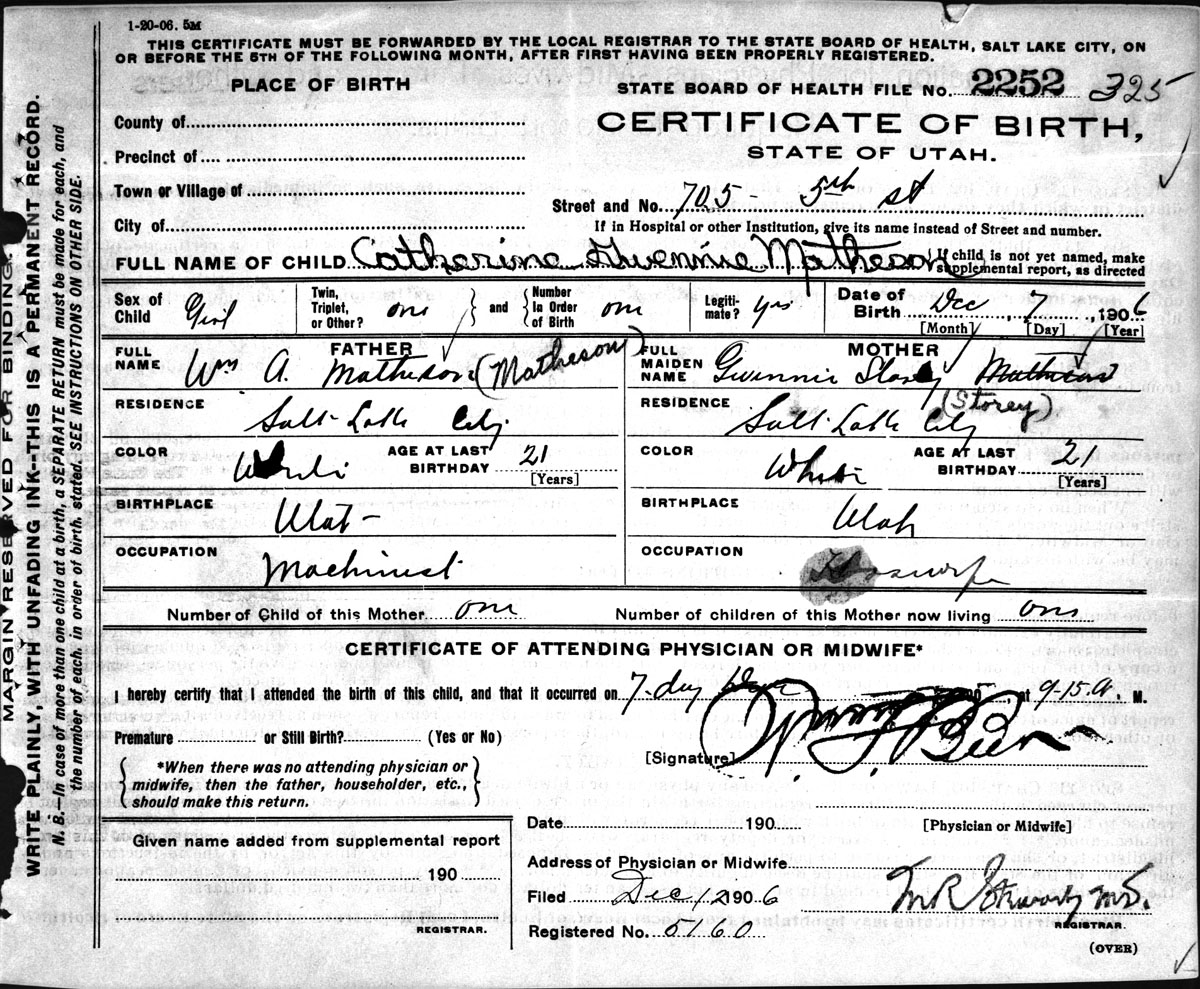 1-20-06. 5M
THIS CERTIFICATE MUST BE FORWARDED BY THE LOCAL REGISTRAR TO THE STATE BOARD OF HEALTH, SALT LAKE CITY, ON
OR BEFORE THE 5TH OF THE FOLLOWING MONTH, AFTER FIRST HAVING BEEN PROPERLY REGISTERED.
PLACE OF BIRTH
STATE BOARD OF HEALTH FILE NO. 2252 325
County of
CERTIFICATE OF BIRTH,
Precinct of
STATE OF UTAH.
Town or Village of
Street and No. 705 - 5th st
City of
If in Hospital or other Institution, give its name instead of Street and number.
FULL NAME OF CHILD Catharine Gwennie Matheson If child is not yet named, make supplemental report, as directed
Sex of Child Girl Twin, Triplet, or Other? one and Number In Order of Birth one Legitimate? yes Date of Birth Dec 7, 1906
[Month] [Day] [Year]
FATHER
FULL NAME Wm A. Matheson (Matheson)
MOTHER
FULL MAIDEN NAME Gwennie (Storey)
RESIDENCE Salt Lake City
RESIDENCE Salt Lake City
COLOR AGE AT LAST BIRTHDAY 21 [Years]
COLOR White AGE AT LAST BIRTHDAY 21 [Years]
BIRTHPLACE Utah
BIRTHPLACE Utah
OCCUPATION Machinist
OCCUPATION Housewife
Number of Child of this Mother one Number of children of this Mother now living one
CERTIFICATE OF ATTENDING PHYSICIAN OR MIDWIFE*
I hereby certify that I attended the birth of this child, and that it occurred on 7 day at 9-15 A. M.
Premature or Still Birth? (Yes or No)
[Signature]
*When there was no attending physician or
midwife, then the father, householder, etc.,
should make this return.
Date 190
[Physician or Midwife]
Given name added from supplemental report
190
REGISTRAR.
Address of Physician or Midwife
Filed Dec 12 1906
REGISTRAR.
Registered No. 5160
(OVER)
MARGIN RESERVED FOR BINDING.
WRITE PLAINLY, WITH UNFADING INK--THIS IS A PERMANENT RECORD.
N. B.—In case of more than one child at a birth, a SEPARATE RETURN must be made for each, and
the number of each, in order of birth, stated. SEE INSTRUCTIONS ON OTHER SIDE.